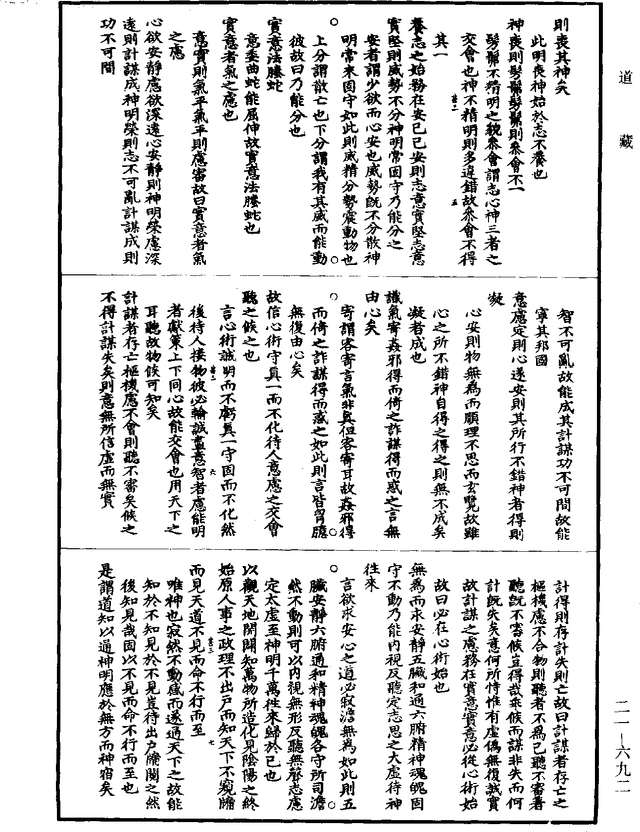 道藏
則喪其神矣
此明喪神始於志不養也
神喪則髣髴髣髴則參會不一
髣髴不精明之貌參會謂志心神三者之
交會也神不精明則多違錯故參會不得
其一
養志之始務在安己己安則志意實堅志意
實堅則威勢不分神明常固守乃能分之
安者謂少欲而心安也威勢既不分散神
明常來固守如此則威精分勢震動物也
上分謂散亡也下分謂我有其威而能動
彼故曰乃能分也
實意法螣蛇
意委曲蛇能屈伸故實意法螣蛇也
實意者氣之慮也
意實則氣平氣平則慮審故曰實意者氣
之慮
心欲安靜慮欲深遠心安靜則神明榮慮深
遠則計謀成神明榮則志不可亂計謀成則
功不可間
智不可亂故能成其計謀功不可間故能
寧其邦國
意慮定則心遂安則其所行不錯神者得則
凝
心安則物無為而順理不思而玄覽故雖
心之所不錯神自得之得之則無不成矣
凝者成也
識氣寄姦邪得而倚之詐謀得而惑之言無
由心矣
寄謂客寄言氣非真但客寄耳故姦邪得
而倚之詐謀得而惑之如此則言皆胷臆
無復由心矣
故信心術守真一而不化待人意慮之交會
聽之候之也
言心術誠明而不虧真一守固而不化然
後待人接物彼必輸誠盡意智者慮能明
者獻策上下同心故能交會也用天下之
耳聽故物候可知矣
計謀者存亡樞機慮不會則聽不審矣候之
不得計謀失矣則意無所信虛而無實
計得則存計失則亡故曰計謀者存亡之
樞機慮不合物則聽者不為己聽不審著
聽既不審候豈得哉乘候而謀非失而何
計既失矣意何所恃惟有虛偽無復誠實
故計謀之慮務在實意實意必從心術始
故曰必在心術始也
無為而求安靜五臟和通六腑精神魂魄固
守不動乃能內視反聽定志思之大虛待神
往來
言欲求安心之道必寂澹無為如此則五
臟安靜六腑通和精神魂魄各守所司澹
然不動則可以內視無形反聽無聲志慮
定太虛至神明千萬往來歸於己也
以觀天地開闢知萬物所造化見陰陽之終
始原人事之政理不出戶而知天下不窺牖
而見天道不見而命不行而至
唯神也寂然不動感而遂通天下之故能
知於不知見於不見豈待出戶牖闚之然
後知見哉固以不見而命不行而至也
是謂道知以通神明應於無方而神宿矣
二一–六九二